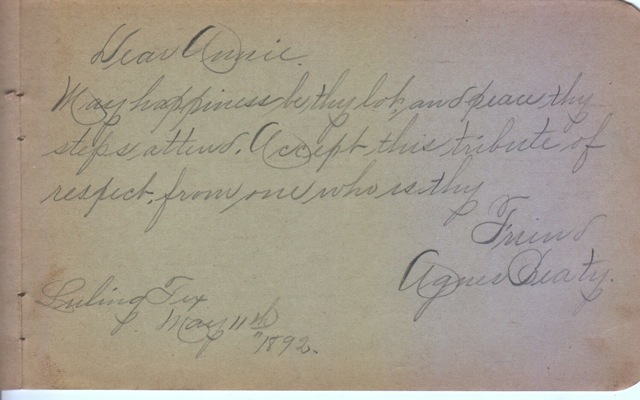 Dear Annie.
May happiness be thy lot, and peace thy
steps attend. Accept this tribute of
respect, from one who is thy
Friend
Agnes Beaty.
Luling Tex
May 11th
"1892.